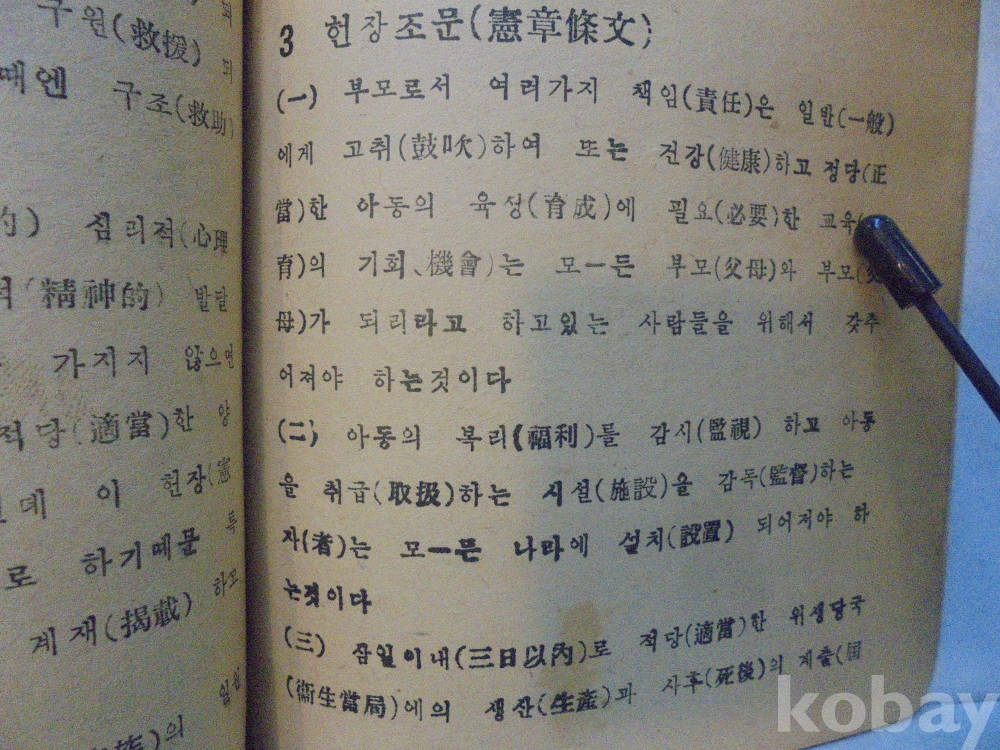 구원(救援) 되
때엔 구조(救助)
심리적(心理
(精神的) 발달
가지지 않으면
적당(適當)한 양
데 이 헌장(憲
로 하기때문 특
게재(揭載) 하고
3 헌장조문(憲章條文)
(一) 부모로서 여러가지 책임(責任)은 일반(一般)
에게 고취(鼓吹)하여 또는 건강(健康)하고 정당(正
當)한 아동의 육성(育成)에 필요(必要)한 교육(
育)의 기회、機會)는 모一든 부모(父母)와 부모(父
母)가 되리라고 하고있는 사람들을 위해서 갖추
어져야 하는것이다
(二) 아동의 복리(福利)를 감시(監視) 하고 아동
을 취급(取扱)하는 시설(施設)을 감독(監督)하는
자(者)는 모一든 나라에 설치(設置) 되어저야 하
는것이다
(三) 삼일이내(三日以內)로 적당(適當)한 위생당국
(衞生當局)에의 생산(生産)과 사후(死後)의 제출(届
kobay